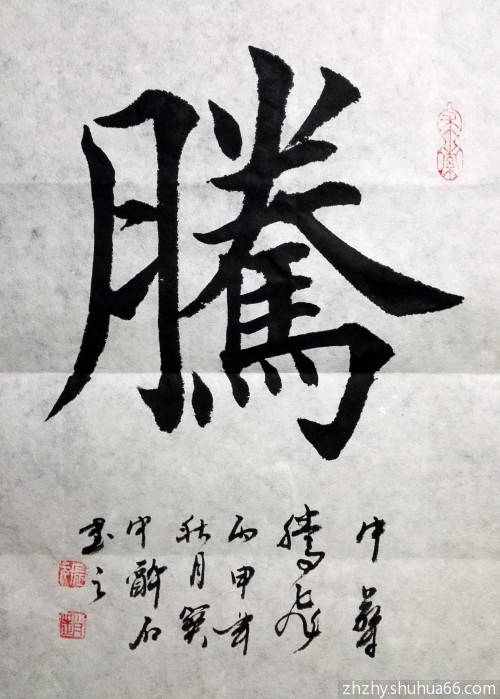 騰
中華
騰飛
丙申年
秋月冀
中醉石
書之
zhzhyshuhua66.com